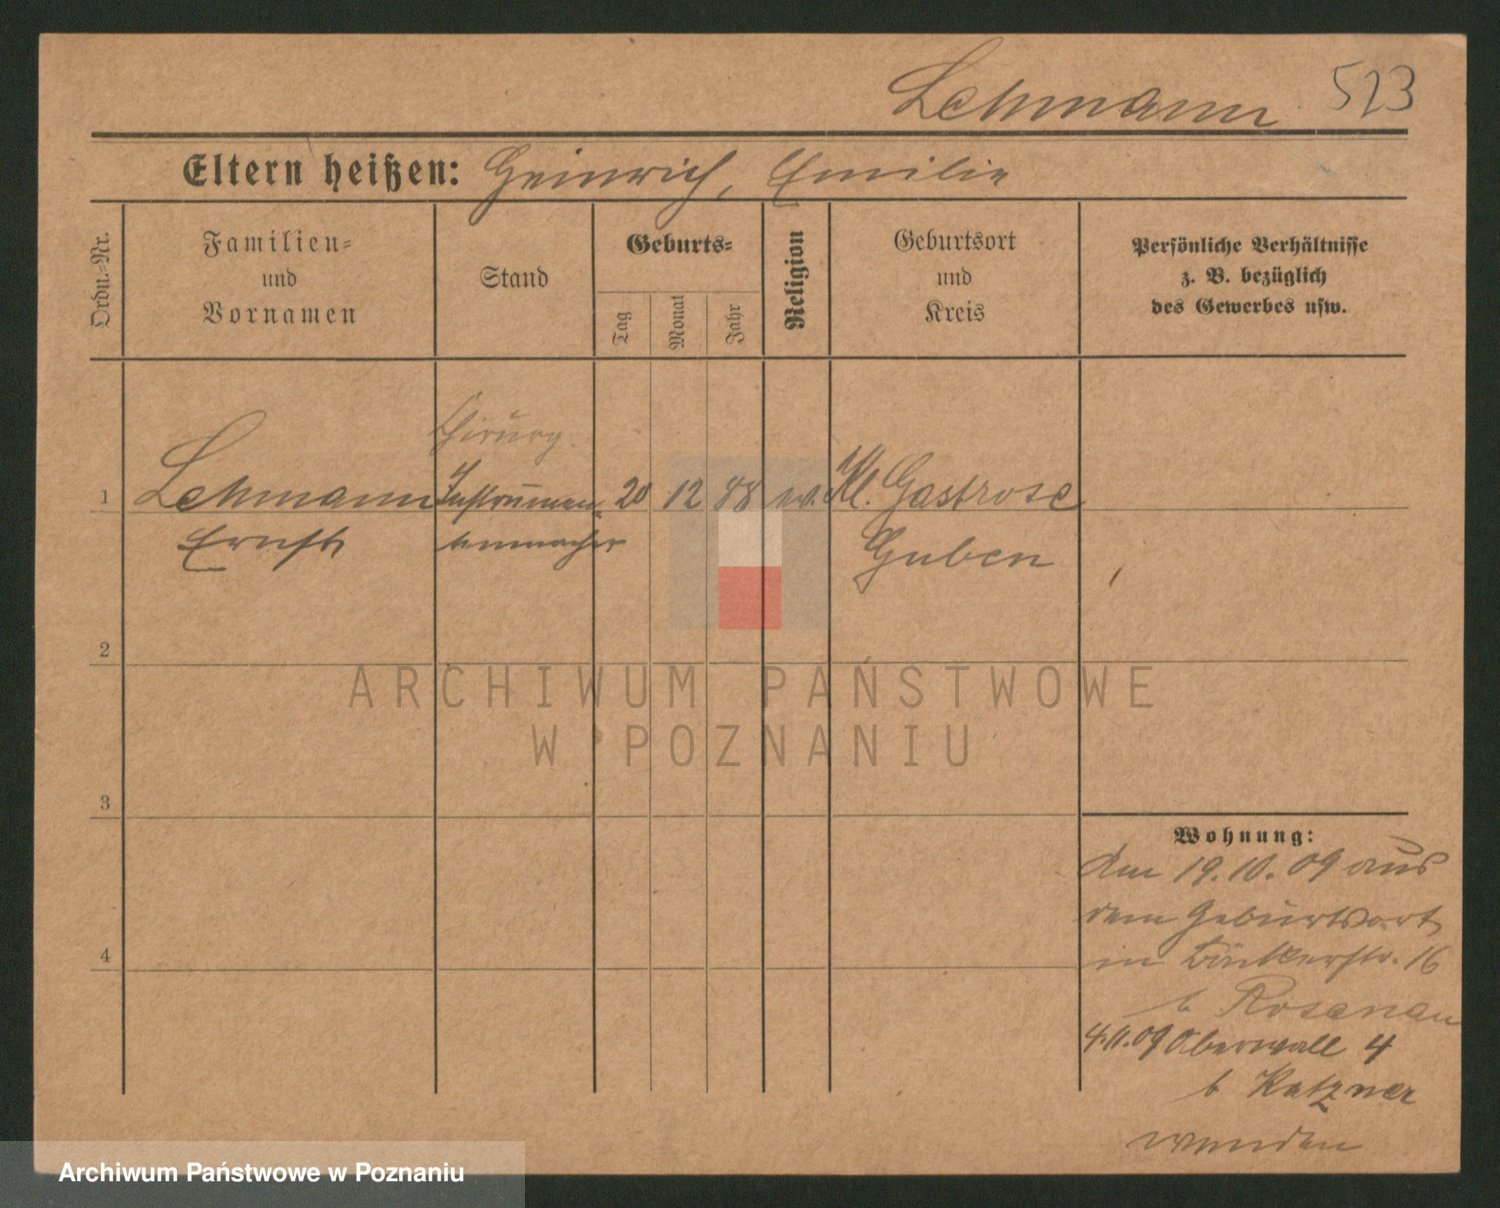 Lehmann 523
Eltern heißen: Heinrich, Emilie
Ordn.-Nr.
Familien-
und
Vornamen
Stand
Geburts-
Tag
Monat
Jahr
Religion
Geburtsort
und
Kreis
Persönliche Verhältnisse
z. B. bezüglich
des Gewerbes usw.
Chirurg.
1 Lehmann Instrumen- 20 12 88 ev. Kl. Gastrose
Ernst tenmacher Guben
2
3
4
ARCHIWUM PAŃSTWOWE
W POZNANIU
Wohnung:
Am 19.10.09 aus
dem Geburtsort
in 16
b Rosenau
4.11.09 Oberwall 4
b Katzner
wenden
Archiwum Państwowe w Poznaniu